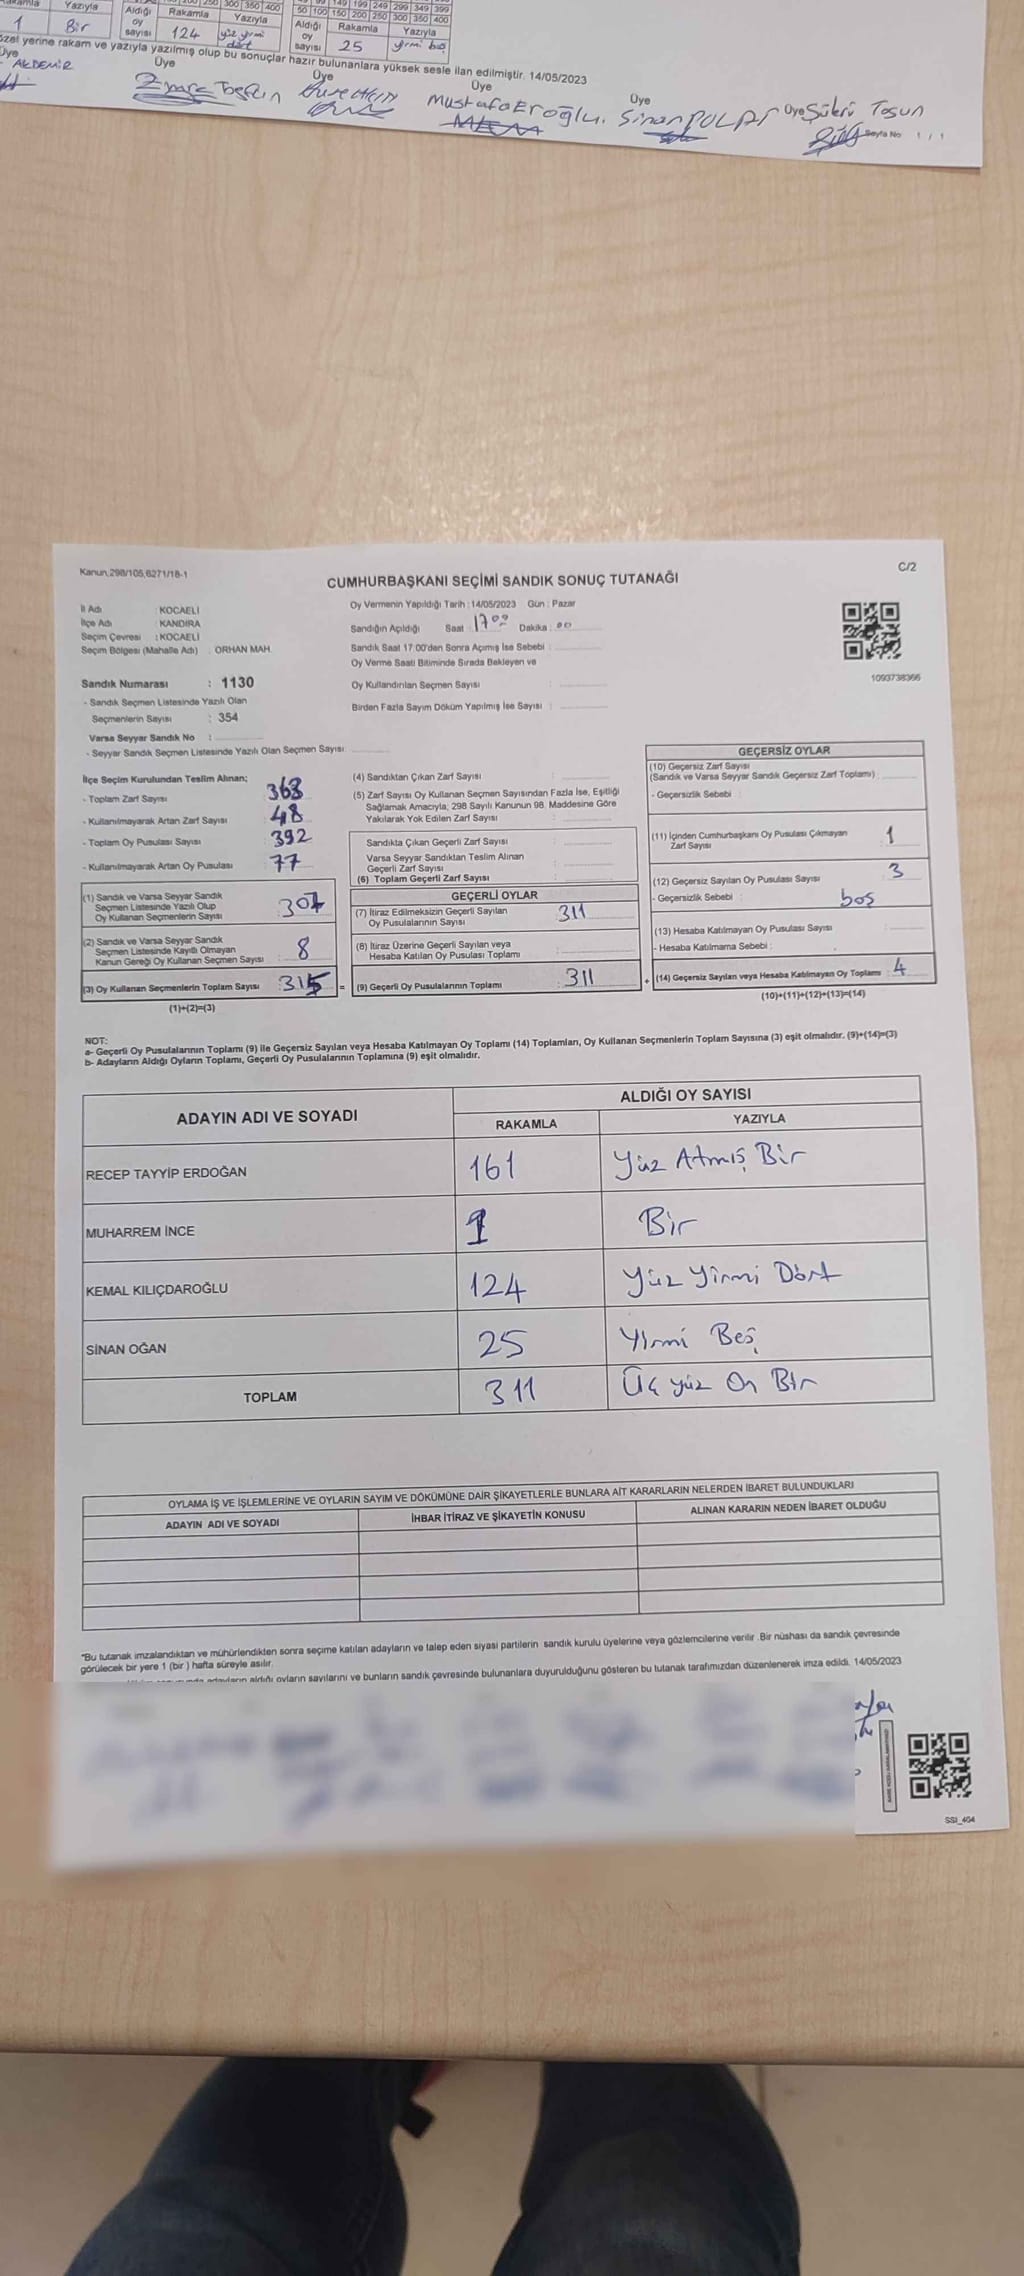 Yazıyla
Aldığı oy sayısı
Rakamla
Yazıyla
50 100 150 200 250 300 350 400
Aldığı oy sayısı
Rakamla
Yazıyla
1
Bir
124
yüz yirmi dört
25
yirmi beş
yerine rakam ve yazıyla yazılmış olup bu sonuçlar hazır bulunanlara yüksek sesle ilan edilmiştir. 14/05/2023
Üye
Üye
Üye
Üye
Üye
Üye Şükrü Tosun
AKDEMİR
Mustafa Eroğlu.
Sinan POLAT
Sayfa No 1 / 1
Kanun,298/105,6271/18-1
CUMHURBAŞKANI SEÇİMİ SANDIK SONUÇ TUTANAĞI
C/2
İl Adı : KOCAELİ
İlçe Adı : KANDIRA
Seçim Çevresi : KOCAELİ
Seçim Bölgesi (Mahalle Adı) : ORHAN MAH.
Sandık Numarası : 1130
- Sandık Seçmen Listesinde Yazılı Olan
Seçmenlerin Sayısı : 354
Varsa Seyyar Sandık No :
- Seyyar Sandık Seçmen Listesinde Yazılı Olan Seçmen Sayısı:
Oy Vermenin Yapıldığı Tarih : 14/05/2023 Gün : Pazar
Sandığın Açıldığı Saat : 17⁰⁰ Dakika : 00
Sandık Saat 17:00'dan Sonra Açımış İse Sebebi :
Oy Verme Saati Bitiminde Sırada Bekleyen ve
Oy Kullandırılan Seçmen Sayısı :
Birden Fazla Sayım Döküm Yapılmış İse Sayısı :
1093738366
İlçe Seçim Kurulundan Teslim Alınan;
- Toplam Zarf Sayısı 363
- Kullanılmayarak Artan Zarf Sayısı : 48
- Toplam Oy Pusulası Sayısı : 392
- Kullanılmayarak Artan Oy Pusulası : 77
(1) Sandık ve Varsa Seyyar Sandık
Seçmen Listesinde Yazılı Olup
Oy Kullanan Seçmenlerin Sayısı : 307
(2) Sandık ve Varsa Seyyar Sandık
Seçmen Listesinde Kayıtlı Olmayan
Kanun Gereği Oy Kullanan Seçmen Sayısı : 8
(3) Oy Kullanan Seçmenlerin Toplam Sayısı : 315 =
(1)+(2)=(3)
(4) Sandıktan Çıkan Zarf Sayısı :
(5) Zarf Sayısı Oy Kullanan Seçmen Sayısından Fazla İse, Eşitliği
Sağlamak Amacıyla; 298 Sayılı Kanunun 98. Maddesine Göre
Yakılarak Yok Edilen Zarf Sayısı :
Sandıkta Çıkan Geçerli Zarf Sayısı :
Varsa Seyyar Sandıktan Teslim Alınan
Geçerli Zarf Sayısı :
(6) Toplam Geçerli Zarf Sayısı :
GEÇERLİ OYLAR
(7) İtiraz Edilmeksizin Geçerli Sayılan
Oy Pusulalarının Sayısı : 311
(8) İtiraz Üzerine Geçerli Sayılan veya
Hesaba Katılan Oy Pusulası Toplamı :
(9) Geçerli Oy Pusulalarının Toplamı : 311 +
GEÇERSİZ OYLAR
(10) Geçersiz Zarf Sayısı
(Sandık ve Varsa Seyyar Sandık Geçersiz Zarf Toplamı) :
- Geçersizlik Sebebi :
(11) İçinden Cumhurbaşkanı Oy Pusulası Çıkmayan
Zarf Sayısı : 1
(12) Geçersiz Sayılan Oy Pusulası Sayısı : 3
- Geçersizlik Sebebi : boş
(13) Hesaba Katılmayan Oy Pusulası Sayısı :
- Hesaba Katılmama Sebebi :
(14) Geçersiz Sayılan veya Hesaba Katılmayan Oy Toplamı : 4
(10)+(11)+(12)+(13)=(14)
NOT:
a- Geçerli Oy Pusulalarının Toplamı (9) ile Geçersiz Sayılan veya Hesaba Katılmayan Oy Toplamı (14) Toplamları, Oy Kullanan Seçmenlerin Toplam Sayısına (3) eşit olmalıdır. (9)+(14)=(3)
b- Adayların Aldığı Oyların Toplamı, Geçerli Oy Pusulalarının Toplamına (9) eşit olmalıdır.
ADAYIN ADI VE SOYADI
ALDIĞI OY SAYISI
RAKAMLA
YAZIYLA
RECEP TAYYİP ERDOĞAN 161 Yüz Atmış Bir
MUHARREM İNCE 1 Bir
KEMAL KILIÇDAROĞLU 124 Yüz Yirmi Dört
SİNAN OĞAN 25 Yirmi Beş
TOPLAM 311 Üç yüz On Bir
OYLAMA İŞ VE İŞLEMLERİNE VE OYLARIN SAYIM VE DÖKÜMÜNE DAİR ŞİKAYETLERLE BUNLARA AİT KARARLARIN NELERDEN İBARET BULUNDUKLARI
ADAYIN ADI VE SOYADI
İHBAR İTİRAZ VE ŞİKAYETİN KONUSU
ALINAN KARARIN NEDEN İBARET OLDUĞU
*Bu tutanak imzalandıktan ve mühürlendikten sonra seçime katılan adayların ve talep eden siyasi partilerin sandık kurulu üyelerine veya gözlemcilerine verilir .Bir nüshası da sandık çevresinde
görülecek bir yere 1 (bir ) hafta süreyle asılır.
adayların aldığı oyların sayılarını ve bunların sandık çevresinde bulunanlara duyurulduğunu gösteren bu tutanak tarafımızdan düzenlenerek imza edildi. 14/05/2023
SSI_404